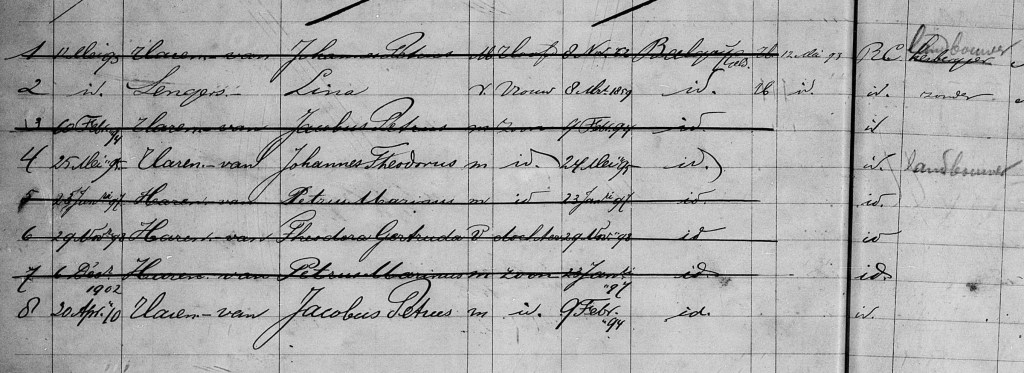 1 11 Mei 93 Haren - van Johannes Petrus M Hoofd 8 Nov. 57 12 Mei 93 RC Landbouwer
2 id. Lengers - Lina v. Vrouw 8 1859 id. id. id. zonder
3 Febr. 94 Haren - van Jacobus Petrus m zoon 9 Febr. 94 id. id
4 25 Mei 95 Haren - van Johannes Theodorus m id. 24 Mei 95 id. id. Landbouwer
5 25 Januari 97 Haren - van Petrus Marinus m id 23 Januari 97 id. id.
6 29 Nov. 98 Haren - van Theodora Gertruda v dochter 29 Nov. 98 id id
7 6 Dec. 1902 Haren - van Petrus Marinus m zoon 23 Jan. 97 id. id.
8 20 Apr. 10 Haren - van Jacobus Petrus m id. 9 Febr. 94 id. id.